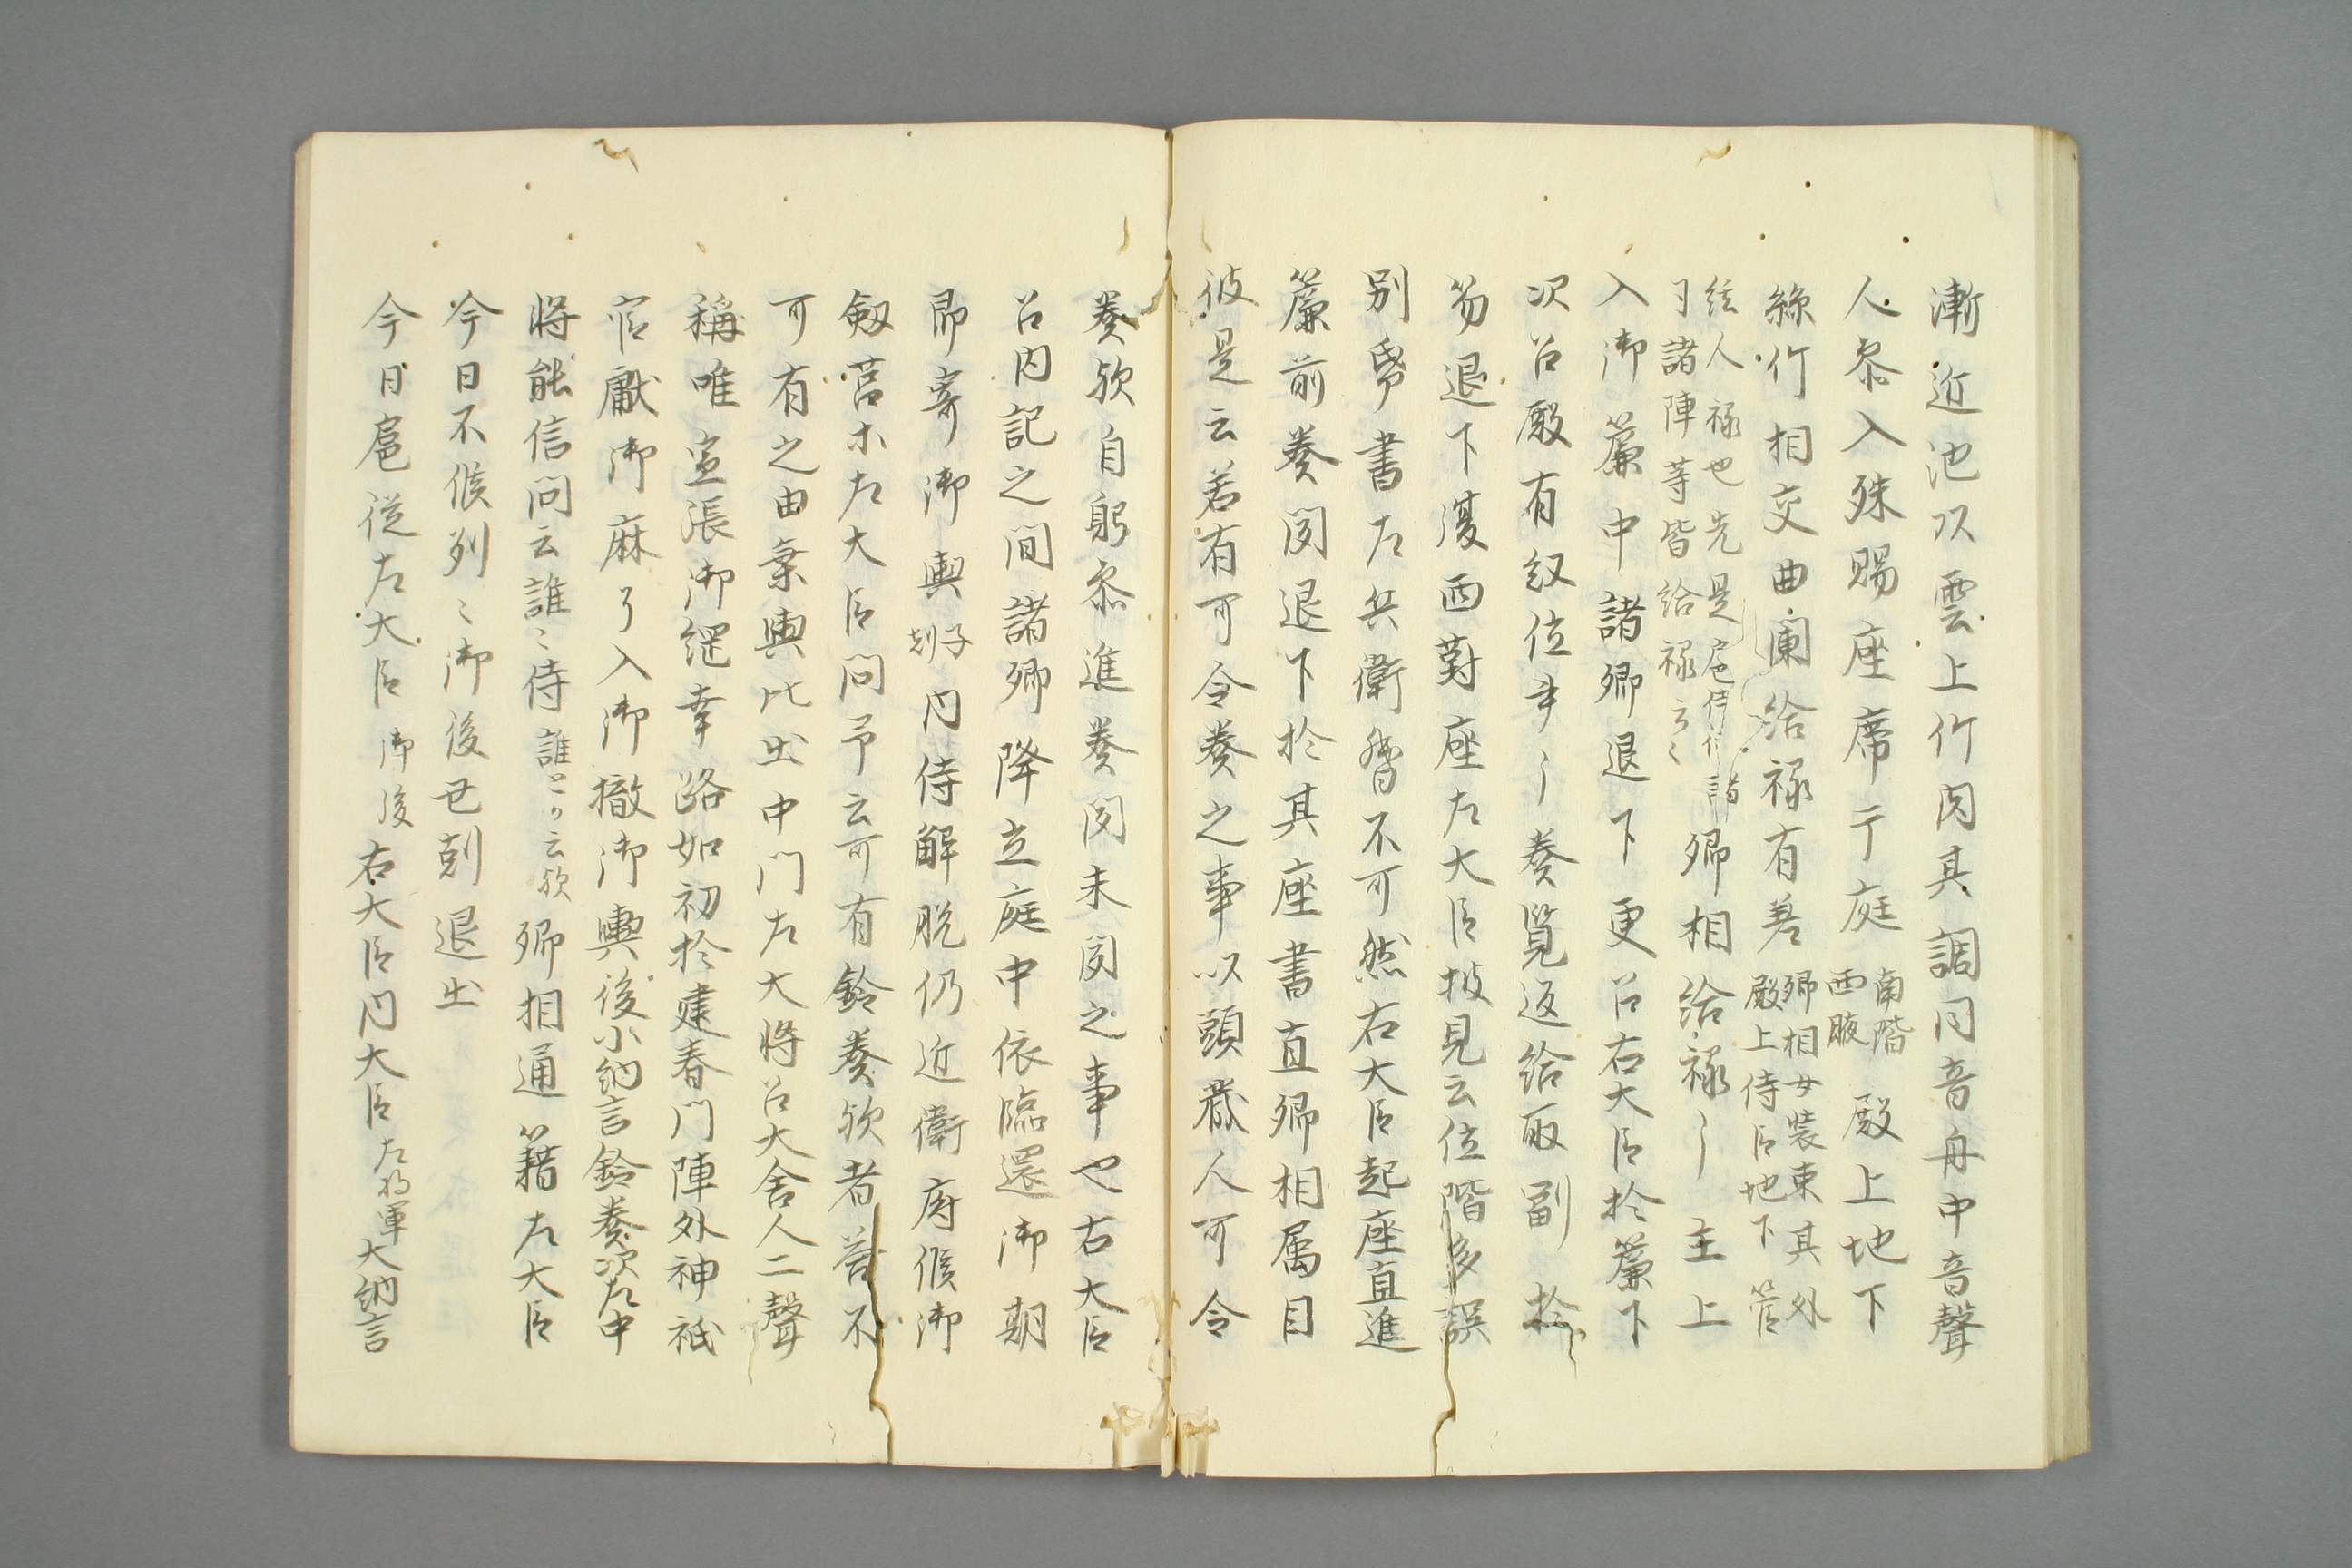 漸近池以雲上竹肉其調同音舟中音聲
人参入殊賜座席于庭南階西腋殿上地下
絲竹相交曲闌給禄有差卿相女装束其外殿上侍臣地下管
絃人禄也先是扈従諸司諸陣等皆給禄云々卿相給禄〻主上
入御簾中諸卿退下更召右大臣於簾下
次召殿有叙位事〻奏覧返給取副於
笏退下復西對座左大臣披見云位階多誤
別帋書左兵衛督不可然右大臣起座直進
簾前奏聞退下於其座書直卿相属目
彼是云若有可令奏之事以頭蔵人可令
奏欤自躬参進奏聞未聞之事也右大臣
召内記之間諸卿降立庭中依臨還御期
即寄御輿剋子内侍解脱仍近衛府候御
釼筥等左大臣問予云可有鈴奏欤者答不
可有之由乗輿比出中門左大将召大舎人二聲
稱唯宣張御綱幸路如初於建春門陣外神祇
官獻御麻了入御撤御輿後小納言鈴奏次左中
将能信問云誰〻侍誰とか云欤卿相通籍左大臣
今日不候列〻御後丑剋退出
今日扈従左大臣御後右大臣内大臣左将軍大納言